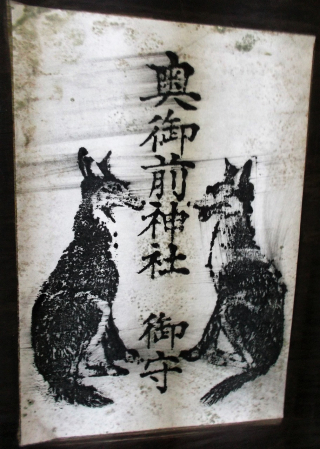 奥御前神社 御守